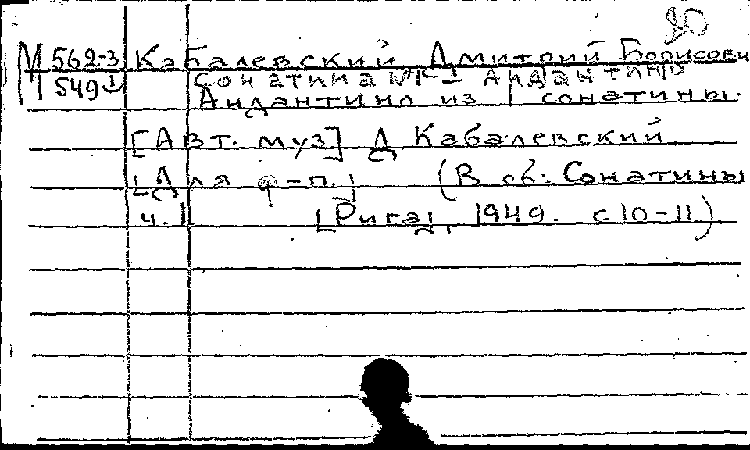 20
М 562-3 Кабалевский Дмитрий Борисович
549 Сонатина №1 Андантино
Андантино из I сонатины.
[Авт. муз] Д Кабалевский
[Для ф-п.] (В сб. Сонатины
ч. I [Рига], 1949. с 10-11.)